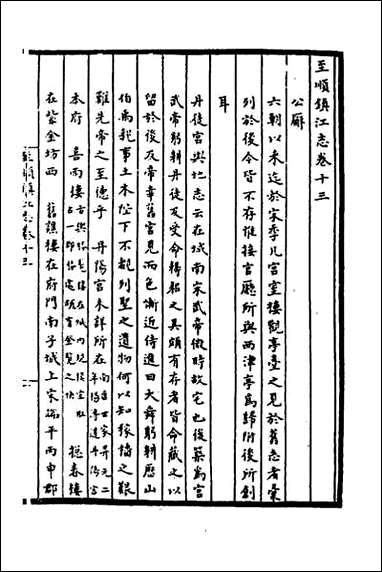 至順鎮江志卷十三
公廨
六朝以來迄於宋季凡官室樓觀亭臺之見於舊志者彙
列於後今皆不存惟接官廳所與西津亭爲歸附後所創
耳
丹徒宫輿地志云在城南宋武帝微時故宅也後築爲宫
武帝躬耕丹徒及受命耨耜之具頗有存者皆命藏之以
留於後及帝幸舊宫見而色慚近侍進曰大舜躬耕歷山
伯禹親事土木陛下不覩列聖之遺物何以知稼穡之艱
難先帝之至德乎 丹陽宫未詳所在南唐世家昇元二年
本府 喜雨樓 穂春樓
在紫金坊西 舊譙樓在府門南子城上宋端平丙申郡
至順鎮江志卷十三